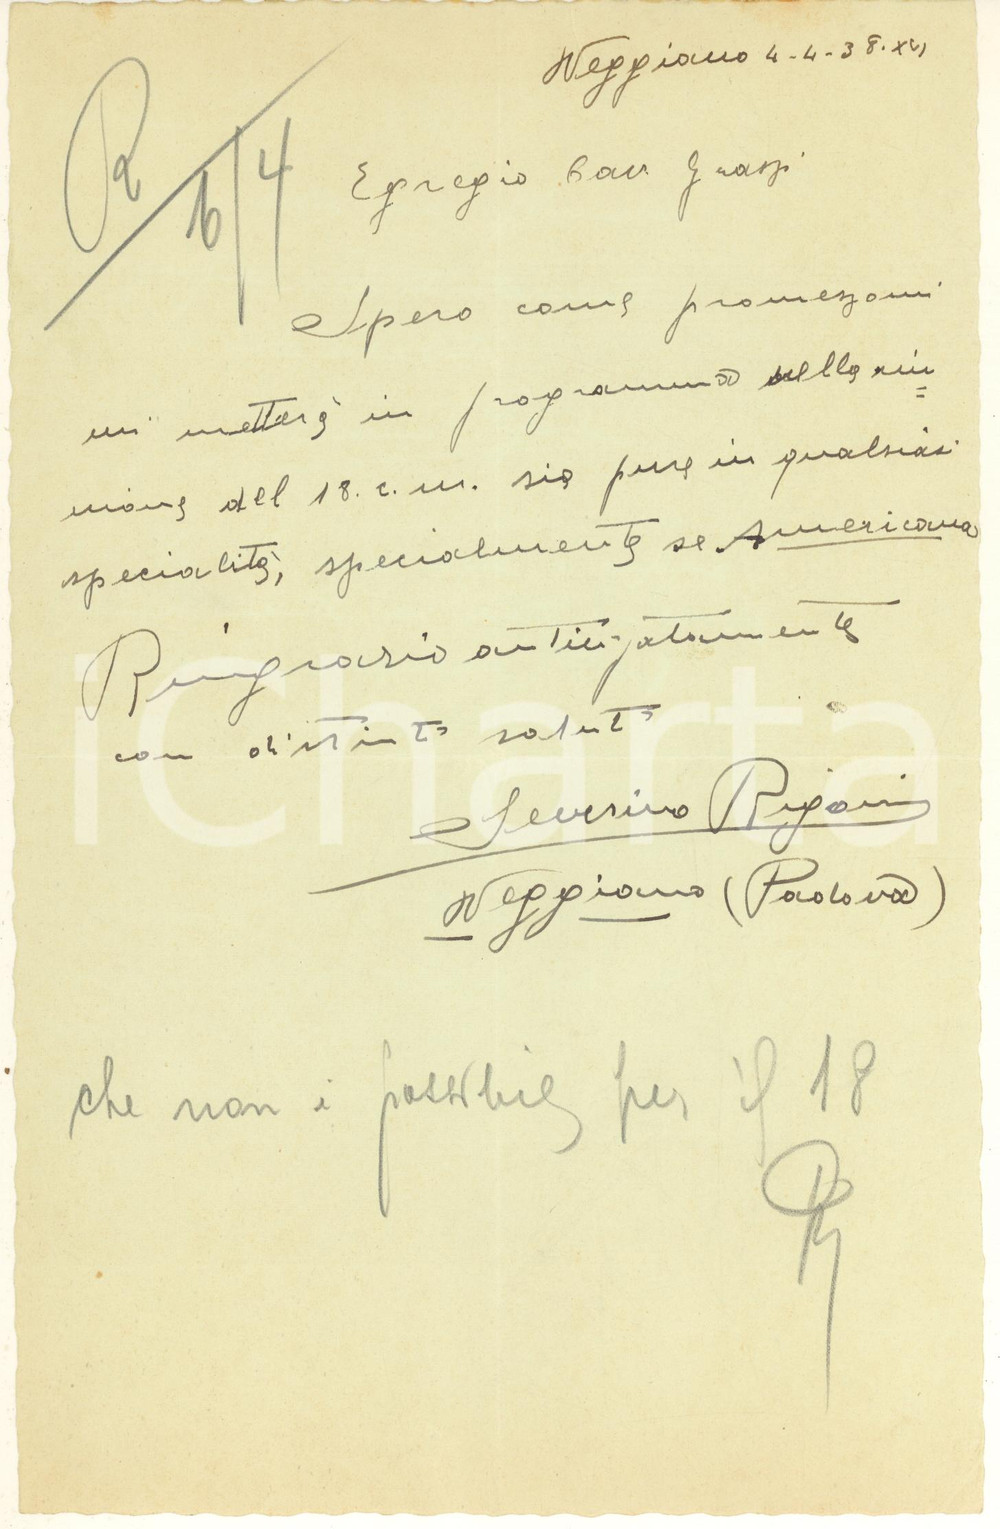 Veggiano 4-4-38.XVI
R 6/4
Egregio Cav Grassi
Spero come promessomi
mi metterà in programma nella riu=
nione del 18. c. m. sia pure in qualsiasi
specialità, specialmente se Americana
Ringrazio anticipatamente
con distinti saluti
Severino Rigoni
Veggiano (Padova)
iCharta
che non i possibile per il 18